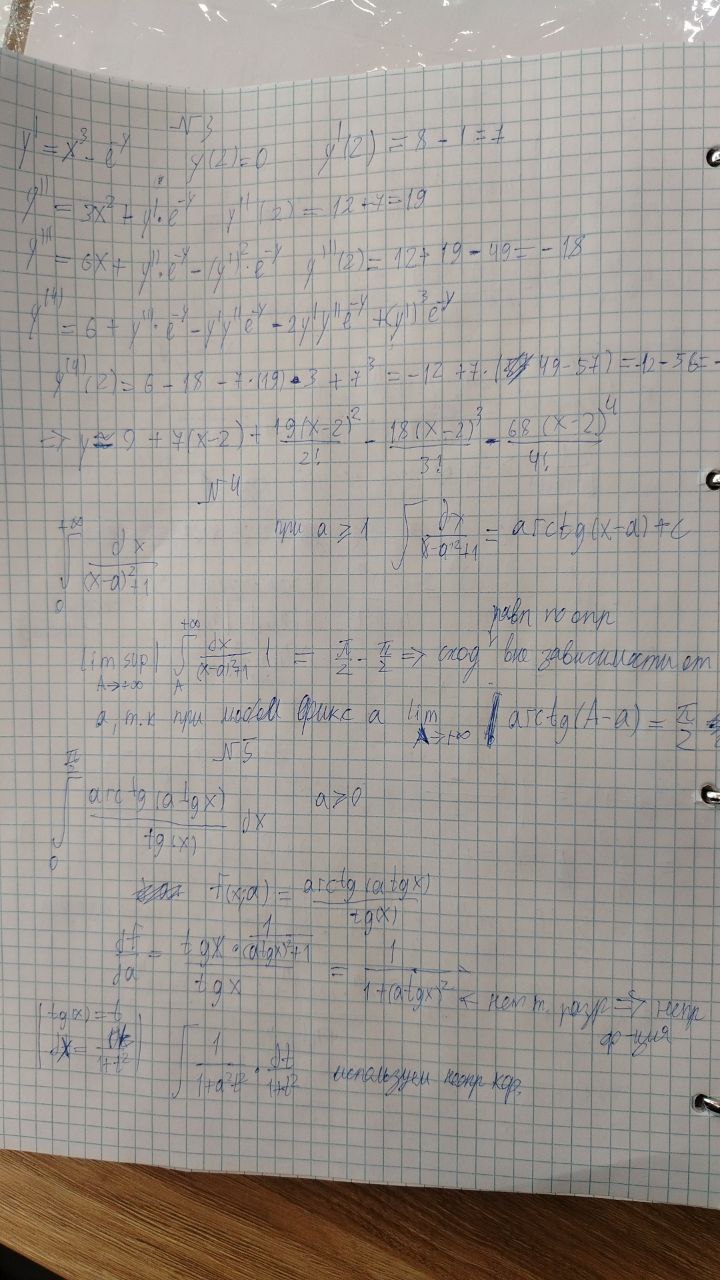 N3
y' = x³ - e⁻ʸ y(2)=0 y'(2) = 8 - 1 = 7
y'' = 3x² + y'·e⁻ʸ y''(2) = 12+7=19
y''' = 6x + y''·e⁻ʸ - (y')²·e⁻ʸ y'''(2) = 12+19-49=-18
y⁽⁴⁾ = 6 + y'''·e⁻ʸ - y'y''e⁻ʸ - 2y'y''e⁻ʸ + (y')³e⁻ʸ
y⁽⁴⁾(2) = 6 - 18 - 7·(19)·3 + 7³ = -12 + 7·(49-57) = -12-56=-
⇒ y≈0 + 7(x-2) + 19(x-2)²/2! - 18(x-2)³/3! - 68(x-2)⁴/4!
N4
∫₀^{+∞} dx/((x-a)²+1) при a ⩾ 1 ∫ dx/((x-a)²+1) = arctg(x-a)+c
равн по опр
lim sup | ∫_A^{+∞} dx/((x-a)²+1) | = π/2 - π/2 ⇒ сход вне зависимости от
A→+∞
a, т.к при любом фикс a lim arctg(A-a) = π/2
A→+∞
N5
∫₀^{π/2} arctg(a tgx)/tg(x) dx a⩾0
f(x;a) = arctg(a tgx)/tg(x)
df/da = (tgx · 1/((atgx)²+1))/tgx = 1/(1+(atgx)²) ← нет т. разр ⇒ непр
ф-ция
| tg(x) = t
dx = dt/(1+t²) | ∫ 1/(1+a²t²) · dt/(1+t²) используем неопр коэф.